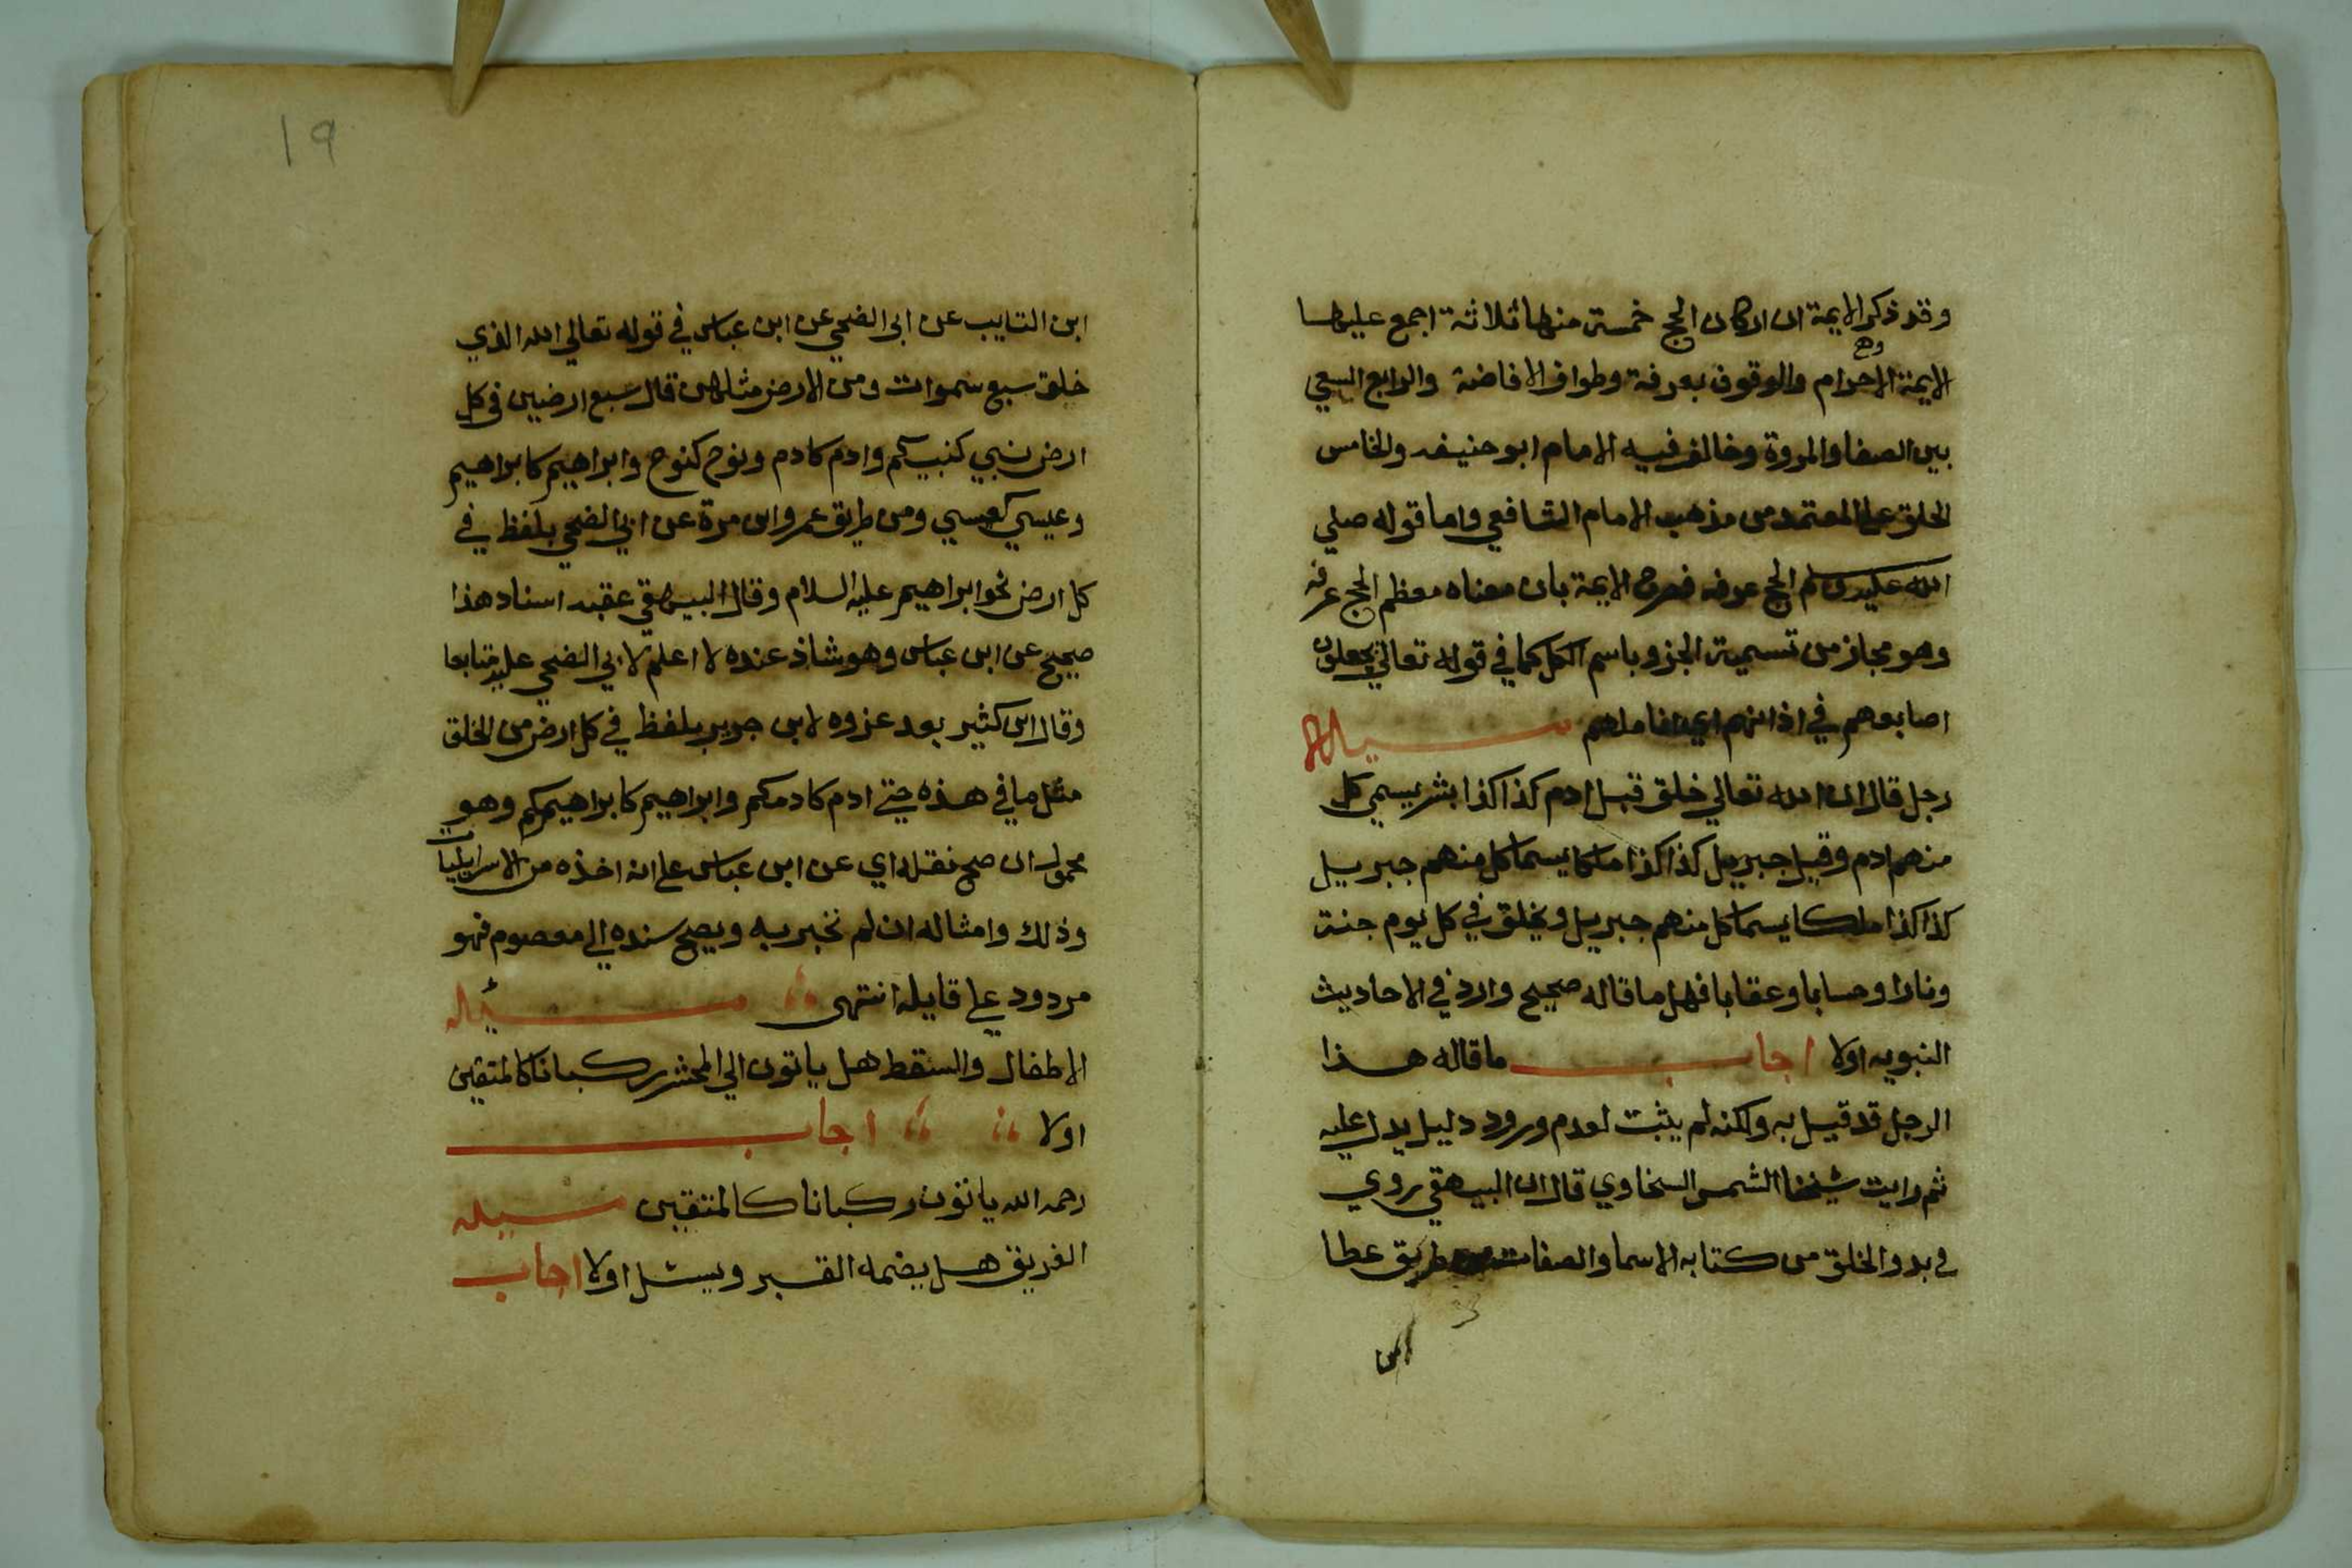 وقد ذكر الايمة ان اركان الحج خمسة منها ثلاثة اجمع عليها
وهم
الايمة الاحرام والوقوف بعرفة وطواف الافاضة والرابع السعي
بين الصفا والمروة وخالف فيه الامام ابو حنيفه والخامس
الحلق على المعتمد من مذهب الامام الشافعي واما قوله صلي
الله عليه وسلم الحج عرفه فصرح الايمة بان معناه معظم الحج عرفه
وهو مجاز من تسمية الجزو باسم الكل كما في قوله تعالي يجعلون
اصابعهم في اذانهم اي اناملهم مسيلة
رجل قال ان الله تعالي خلق قبل ادم كذا كذا بشر يسمي كل
منهم ادم وقبل جبريل كذا كذا ملكا يسما كل منهم جبريل
كذا كذا ملكا يسما كل منهم جبريل ويخلق في كل يوم جنة
ونارا وحسابا وعقابا فهل ما قاله صحيح وارد في الاحاديث
النبويه اولا اجاب ما قاله هذا
الرجل قد قيل به ولكنه لم يثبت لعدم ورود دليل يدل عليه
ثم رايت شيخنا الشمس السخاوي قال ان البيهقي روي
في بدو الخلق من كتابه الاسما والصفات من طريق عطا
ابن
19
ابن السايب عن ابي الضحي عن ابن عباس في قوله تعالي الله الذي
خلق سبع سموات ومن الارض مثلهن قال سبع ارضين في كل
ارض نبي كنبيكم وادم كادم ونوح كنوح وابراهيم كابراهيم
وعيسي كعيسي ومن طريق عمرو ابن مرة عن ابي الضحي بلفظ في
كل ارض نحو ابراهيم عليه السلام وقال البيهقي عقبه اسناد هذا
صحيح عن ابن عباس وهو شاذ عنده لا اعلم لابي الضحي عليه متابعا
وقال ابن كثير بعد عزوه لابن جرير بلفظ في كل ارض من الخلق
مثل ما في هذه حتي ادم كادمكم وابراهيم كابراهيمكم وهو
محمول ان صح نقله اي عن ابن عباس علي انه اخذه من الاسرايليات
وذلك وامثاله ان لم نخبر به ويصح سنده الي معصوم فهو
مردود علي قايله انتهى مسئيله
الاطفال والسقط هل ياتون الي المحشر ركبانا كالمتقين
اولا اجاب
رحمه الله ياتون ركبانا كالمتقين مسيله
الغريق هل يضمه القبر ويسئل اولا اجاب